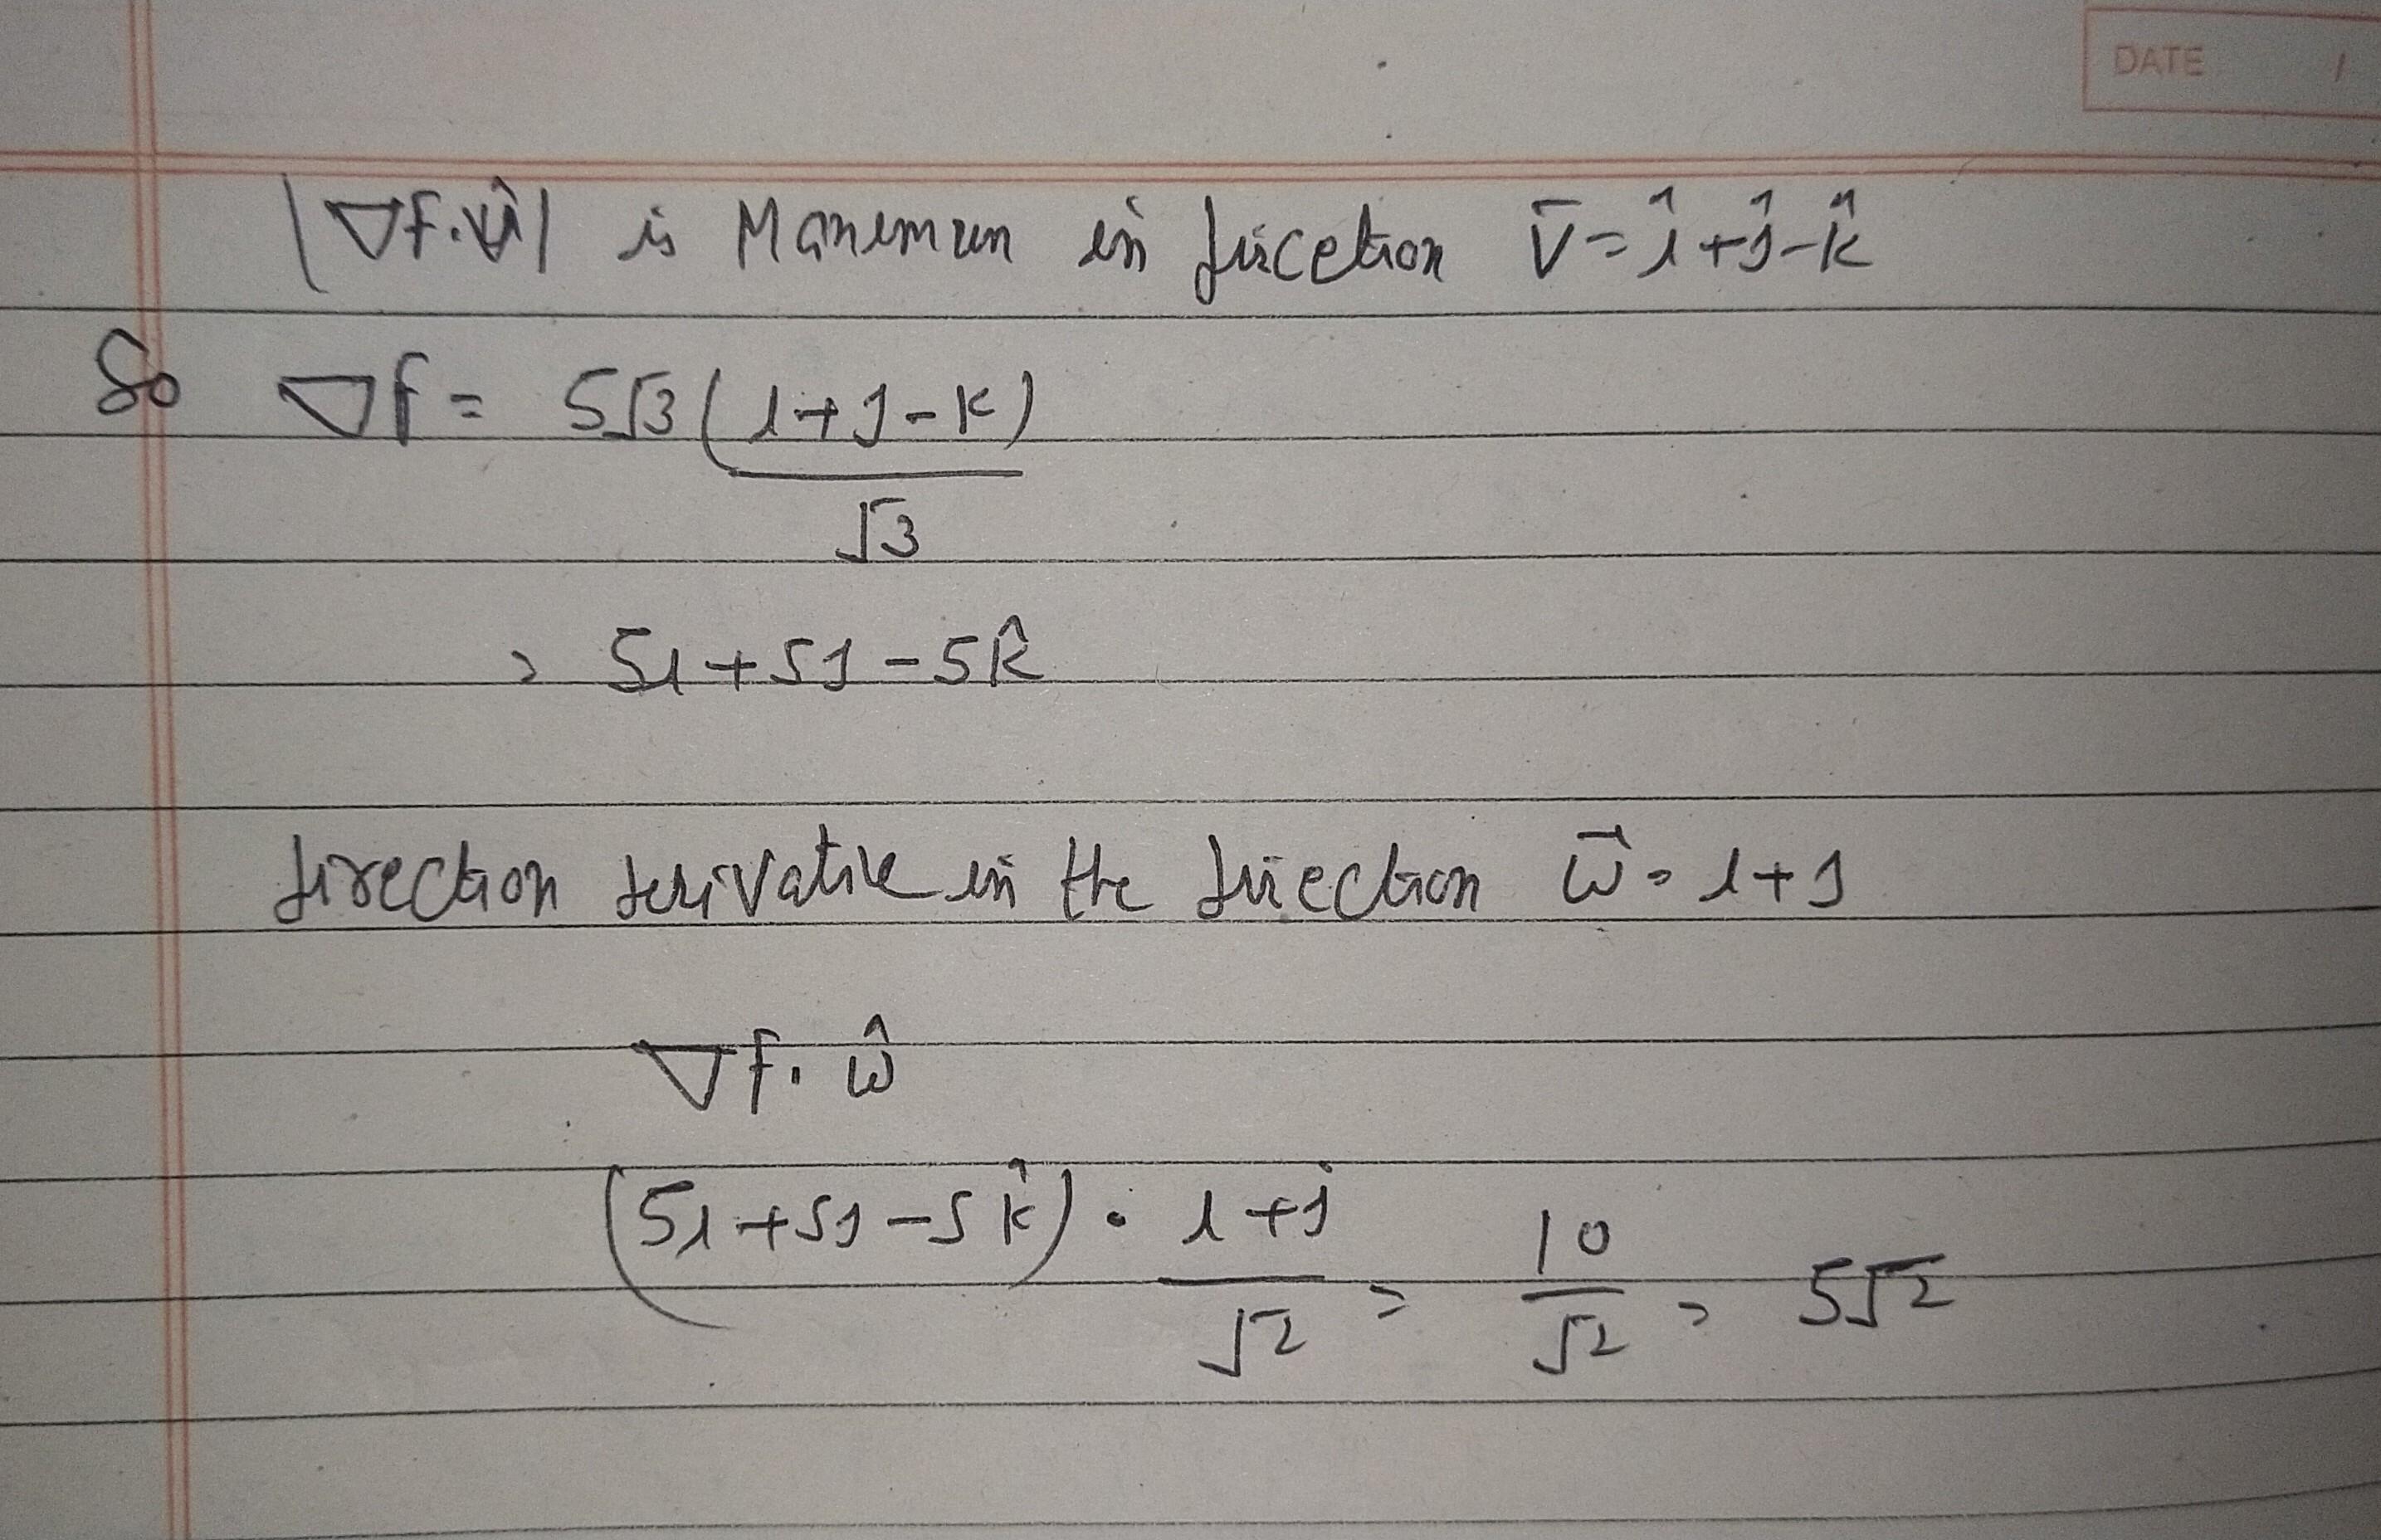 DATE /
|∇f.û| is Maximum in direction v̄ = î+ĵ-k̂
So ∇f = 5√3 (i+j-k)
√3
= 5i+5j-5k̂
direction derivative in the direction w⃗ = i+j
∇f. ŵ
(5i+5j-5k̂) . i+j = 10 = 5√2
√2 √2